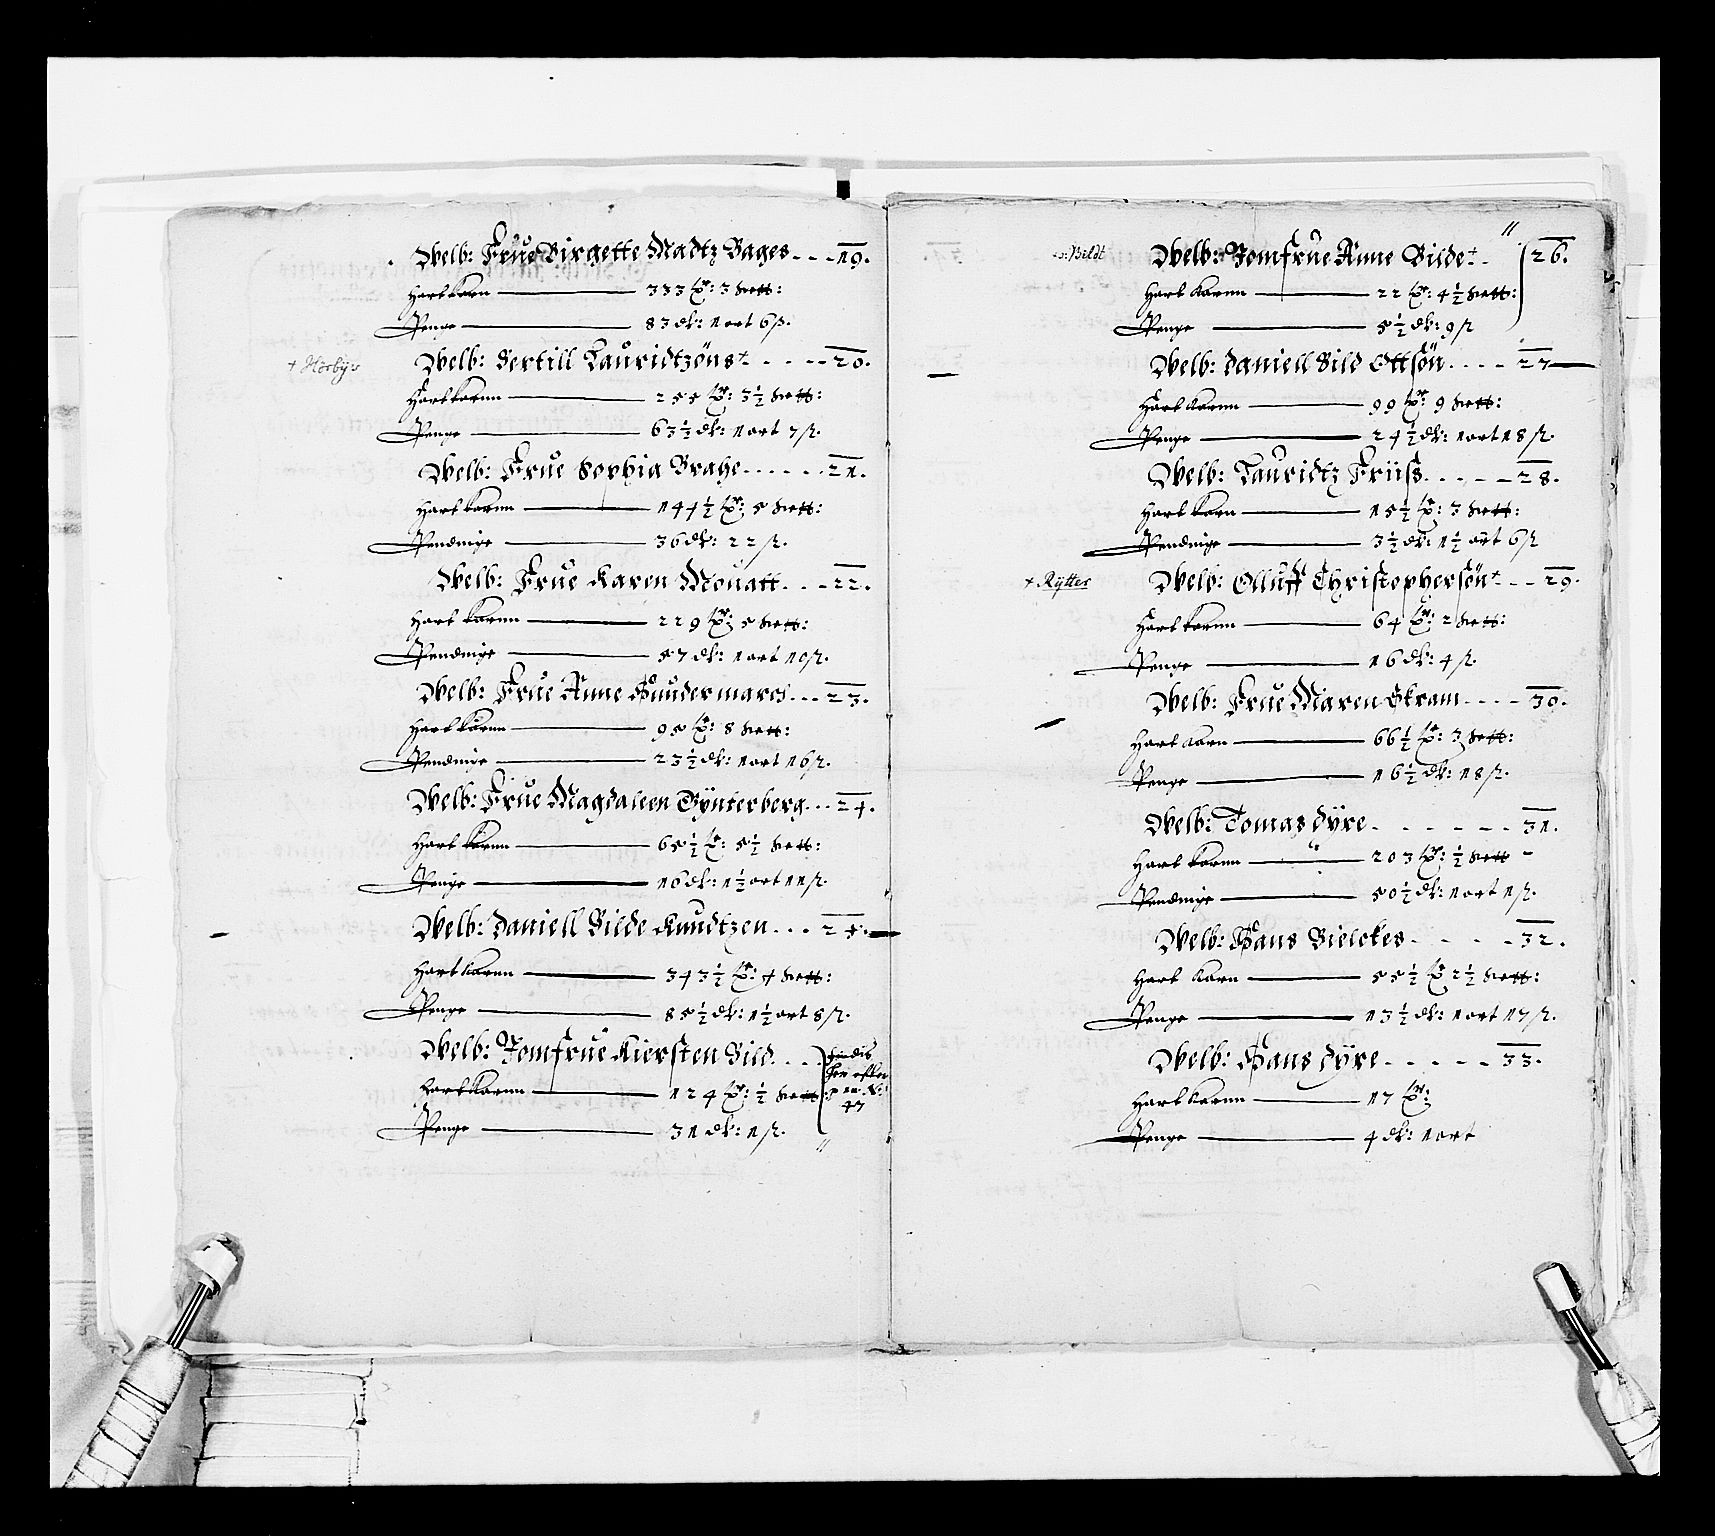 Welb: Frue Birgette Madtz Bages - - - 19.
Hart Korn — 333 tr: 3 skett:
Penge — 83 dlr: 1 ort 6 ß.
+ Hörbÿe
Welb: Bertill Lauridtzöns + - - - - 20.
Hart korn — 255 tr: 3½ skett:
Penge — 63½ dlr: 1 ort 7 ß.
Welb: Frue Sophia Brahe - - - - - - 21.
Hart korn — 144½ tr: 5 skett:
Pendinge — 36 dlr: 22 ß.
Welb: Frue Karen Mouatt - - - 22.
Hart korn — 229 tr: 5 skett:
Pendinge — 57 dlr: 1 ort 10 ß.
Welb: Frue Anne Gundermarcs - - - 23.
Hart korn — 95 tr: 8 skett:
Pendinge — 23½ dlr: 1 ort 16 ß.
Welb: Frue Magdaleen Gÿnterberg - - - 24.
Hart korn — 65½ tr: 5½ skett:
Penge — 16 dlr: 1½ ort 11 ß.
Welb: Daniell Bilde Knudtzen - - - 25.
Hart korn — 343½ tr: 4 skett:
Penge — 85½ dlr: 1½ ort 8 ß.
Welb: Jomfrue Kiersten Bild - - -
Hart Korn — 124 tr: ½ skett
Penge — 31 dlr: 1 ß.
findis
her efter
No:
47
"
"
v. Bildt
Welb: Jomfrue Anne Bilde + - 26.
Hart korn — 22 tr: 4½ skett:
Penge — 5½ dlr: 9 ß
Welb: Daniell Bild Ottsön - - - - 27
Hart korn — 99 tr: 9 skett:
Penge — 24½ dlr: 1 ort 18 ß.
Welb: Lauridtz Friiss - - - - - 28.
Hart korn — 15½ tr: 3 skett:
Pendinge — 3½ dlr: 1½ ort 6 ß
+ Rÿtter
Welb: Olluff Christophersön + - - 29.
Hart korn — 64 tr: 2 skett:
Penge — 16 dlr: 4 ß.
Welb: Frue Maren Skram - - - - 30.
Hart korn — 66½ tr: 3 skett:
Penge — 16½ dlr: 18 ß.
Welb: Tomas Dÿre - - - - - - 31.
Hart korn — 203 tr: ½ skett -
Pendinge — 50½ dlr: 1 ort 1 ß.
Welb: Hans Bielckes - - - - 32.
Hart korn — 55½ tr 2½ skett:
Penge — 13½ dlr: 1 ort 17 ß.
Welb: Hans Dÿre - - - - - 33.
Hart korn — 17 tr:
Penge — 4 dlr: 1 ort